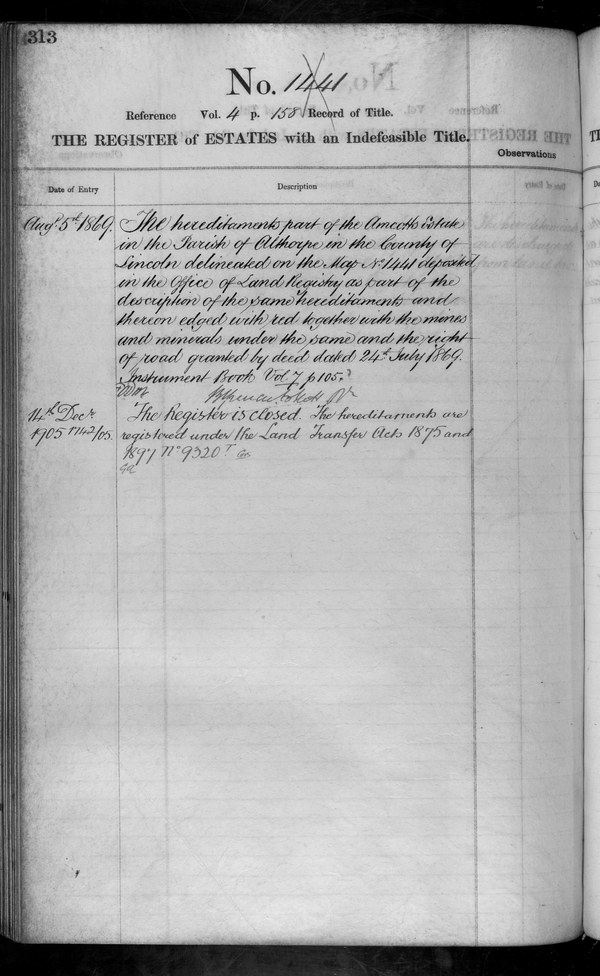 313
No. 1441
Reference Vol. 4 p. 158 Record of Title.
THE REGISTER of ESTATES with an Indefeasible Title.
Observations
Date of Entry
Description
Augt 5th 1869.
The hereditaments part of the Amcotts Estate
in the Parish of Althorpe in the County of
Lincoln delineated on the Map No. 1441 deposited
in the Office of Land Registry as part of the
description of the same hereditaments and
thereon edged with red together with the mines
and minerals under the same and the right
of road granted by deed dated 24th July 1869.
Instrument Book Vol. 7 p 105.
14th Decr
1905 1142/05.
The Register is closed. The hereditaments are
registered under the Land Transfer Acts 1875 and
1897 No 9320